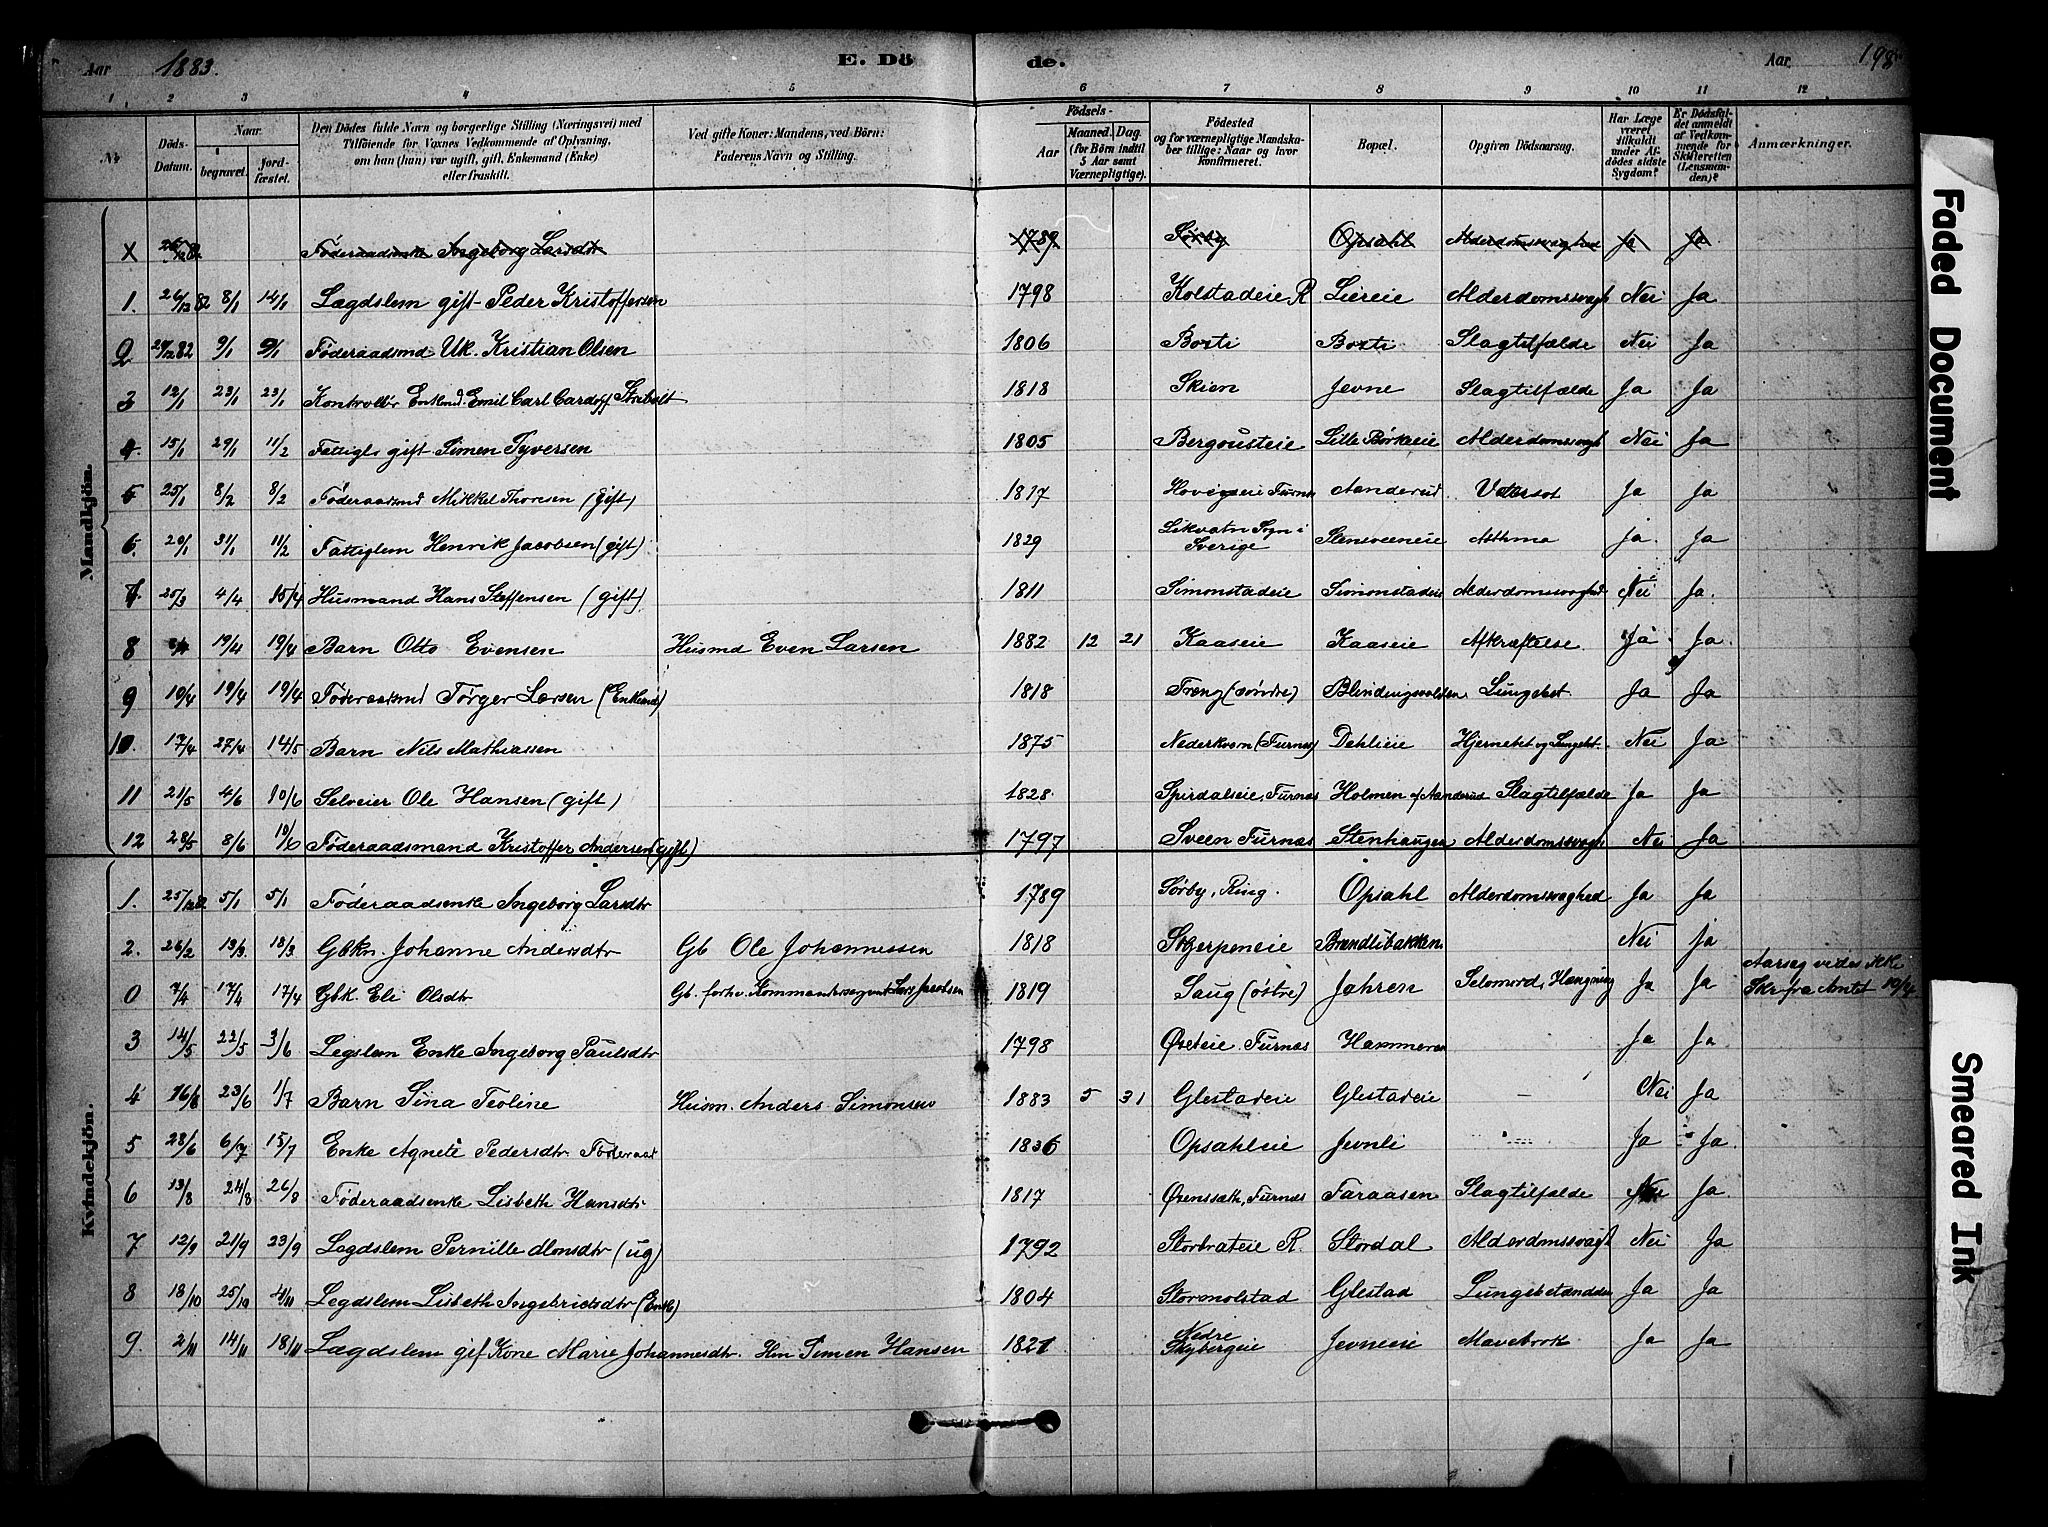 Aar 1883. E. Dö de. Aar 198
1 2 3 4 5 6 7 8 9 10 11 12
Nr
Döds-Datum.
Naar
begravet.
Jord-fæstet.
Den Dödes fulde Navn og borgerlige Stilling (Næringsvei) med
Tilföiende for Voxnes Vedkommende af Oplysning,
om han (hun) var ugift, gift, Enkemand (Enke)
eller fraskilt.
Ved gifte Koner: Mandens, ved Börn:
Faderens Navn og Stilling.
Födsels-
Aar
Maaned. Dag.
(for Börn indtil
5 Aar samt
Værnepligtige).
Födested
og for værnepligtige Mandska-
ber tillige: Naar og hvor
konfirmeret.
Bopæl.
Opgiven Dödsaarsag.
Har Læge
været
tilkaldt
under Af-
dödes sidste
Sygdom?
Er Dödsfal-
det anmeldt
af Vedkom-
mende for
Skifteretten
(Lensman-
den)?
Anmærkninger.
Mandkjön.
X Føderaadsenke Ingeborg Larsdtr 1789 Sørby Opsahl Alderdomssvaghed Ja Ja
1. 26/12 82 8/1 14/1 Lægdslem gift Peder Kristoffersen 1798 Kolstadeie, R Liereie Alderdomssvagh Nei Ja
2 29/12 82 9/1 9/1 Føderaadsmd Uk. Kristian Olsen 1806 Boxti Boxti Slagtilfælde Nei Ja
3 12/1 23/1 23/1 Kontrollør Enkmd. Emil Carl Stribolt 1818 Skien Jevne Slagtilfælde Ja Ja
4 15/1 29/1 11/2 Fattigl. gift Simen Syversen 1805 Bergousteie Lille Børkeeie Alderdomssvagh Nei Ja
5 25/1 8/2 8/2 Føderaadsmd Mikkel Thoresen (gift) 1817 Furnæs Aanderud Vatersot Ja Ja
6. 29/1 31/1 11/2 Fattiglem Henrik Jacobsen (gift) 1829 Sogn i
Sverige Stensveeneie Asthma Ja. Ja
7. 25/3 4/4 15/4 Husmand Hans Steffensen (gift) 1811 Simonstadeie Simonstadeie Alderdomssvaghed Nei Ja.
8 19/4 19/4 Barn Otto Evensen Husmd Even Larsen 1882 12 21 Kaaseie Kaaseie Afkræftelse. Ja Ja
9 10/4 19/4 19/4 Føderaadsmd Tørger Larsen (Enkemd) 1818 Freng (søndre) Blindingsvolden Lungebet Ja Ja
10. 17/4 27/4 14/5 Barn Nils Mathiassen 1875 Nederkvern (Furnæs) Dehlieie Hjernebet og Lungebet. Nei Ja
11 21/5 4/6 10/6 Selveier Ole Hansen (gift) 1828. Spirdalseie, Furnæs Holmen af Aanderud Slagtilfælde Ja Ja
12 28/5 8/6 10/6 Føderaadsmand Kristoffer Andersen (gift) 1797 Sveen Furnæs Stenhaugen Alderdomssvagh Nei Ja
Kvindekjön.
1. 25/12 82 5/1 5/1 Føderaadsenke Ingeborg Larsdtr 1789 Sørby, Ring. Opsahl Alderdomssvaghed Ja Ja
2. 26/2 13/3 18/3 Gbkn. Johanne Andersdtr Gb Ole Johannessen 1818 Skjerpeneie Brændlibakken Nei Ja
0 7/4 17/4 17/4 Gbk. Eli Olsdtr Gb. forhv. Kommandersergeant Lars Jacobsen 1819 Saug (østre) Jahren Selvmord, Hængning Ja Ja Aarsag vides ikke
Skr fra Amtet 19/4
3 14/5 22/5 3/6 Legslem Enke Ingeborg Paulsdtr 1798 Furnæs Hammeren Ja Ja
4 16/6 23/6 1/7 Barn Sina Teoline Husm. Anders Simonsen 1883 5 31 Glestadeie Glestadeie — Nei Ja
5 28/6 6/7 15/7 Enke Agnete Pedersdtr. Føderaad 1836 Opsahleie Jevnli — Ja Ja
6 13/8 24/8 26/8 Føderaadsenke Lisbeth Hansdtr 1817 Furnæs Faraasen Slagtilfælde Nei Ja
7 12/9 21/9 23/9 Legdslem Pernille (ug) 1792 Storbrateie R. Stordal Alderdomssvagh Nei Ja
8 18/10 25/10 4/11 Legdslem Lisbeth Ingebrigtsdtr (Enke) 1804 Stormolstad Glestad Lungebetændelse Ja Ja
9. 2/11 14/11 18/11 Lægdslem gif Kone Marie Johannesdtr. Hm Simen Hansen 1821 Nedre
Skybergeie Jevneeie Mavebrok Ja Ja
Faded Document
Smeared Ink